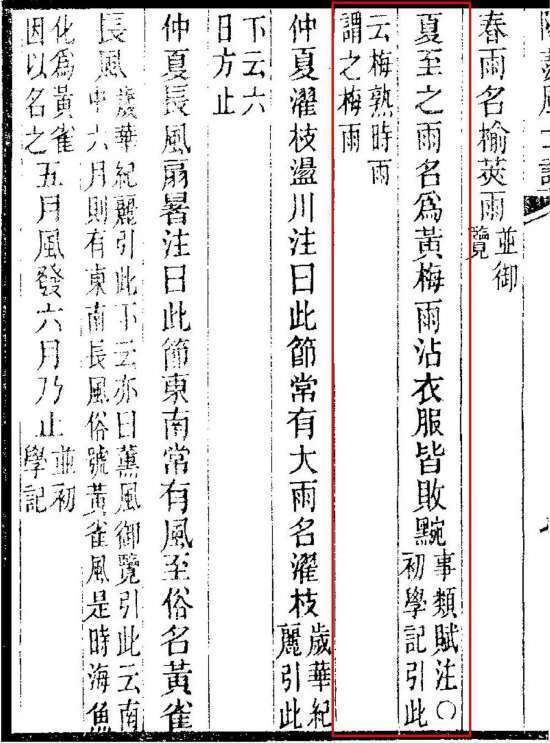 春雨名榆莢雨並御覽
夏至之雨名爲黃梅雨沾衣服皆敗黦事類賦注〇初學記引此
云梅熟時雨謂之梅雨
仲夏濯枝盪川注曰此節常有大雨名濯枝歲華紀麗引此
下云六日方止
仲夏長風扇暑注曰此節東南常有風至俗名黃雀
長風歲華紀麗引此下云亦曰薰風御覽引此云南中六月則有東南長風俗號黃雀風是時海魚
化爲黃雀因以名之五月風發六月乃止並初學記